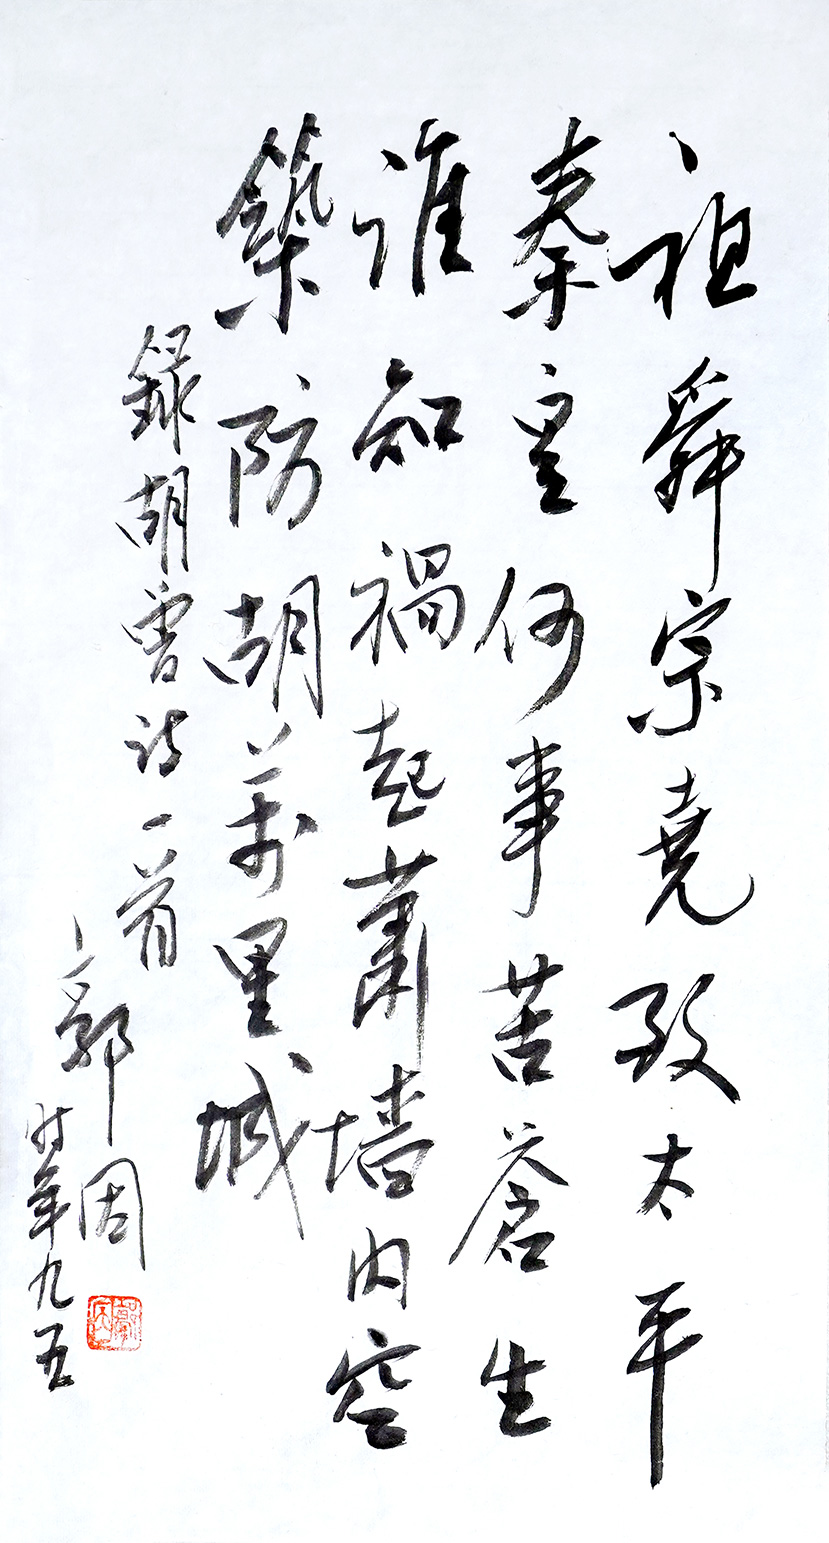 祖舜宗堯致太平
秦皇何事苦蒼生
谁知禍起蕭墻内空
築防胡萬里城
録胡曾诗一首
郭固
时年九五